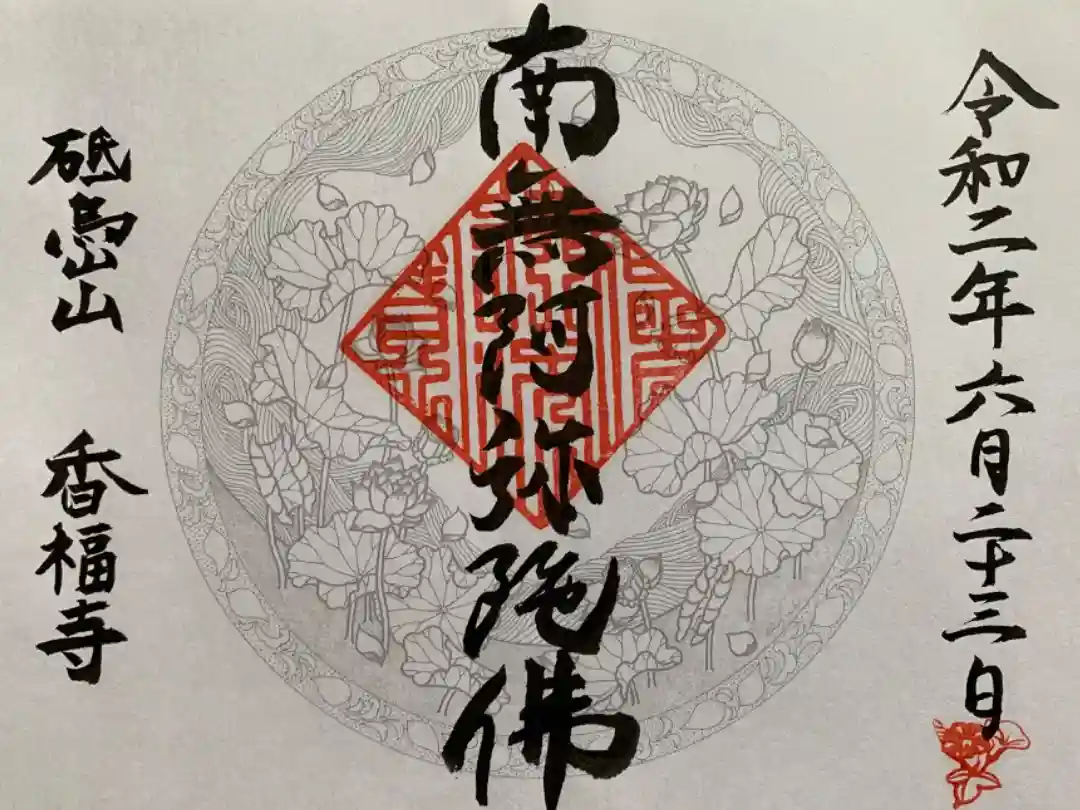 令和二年六月二十三日
南無阿弥陀佛
砥島山　香福寺